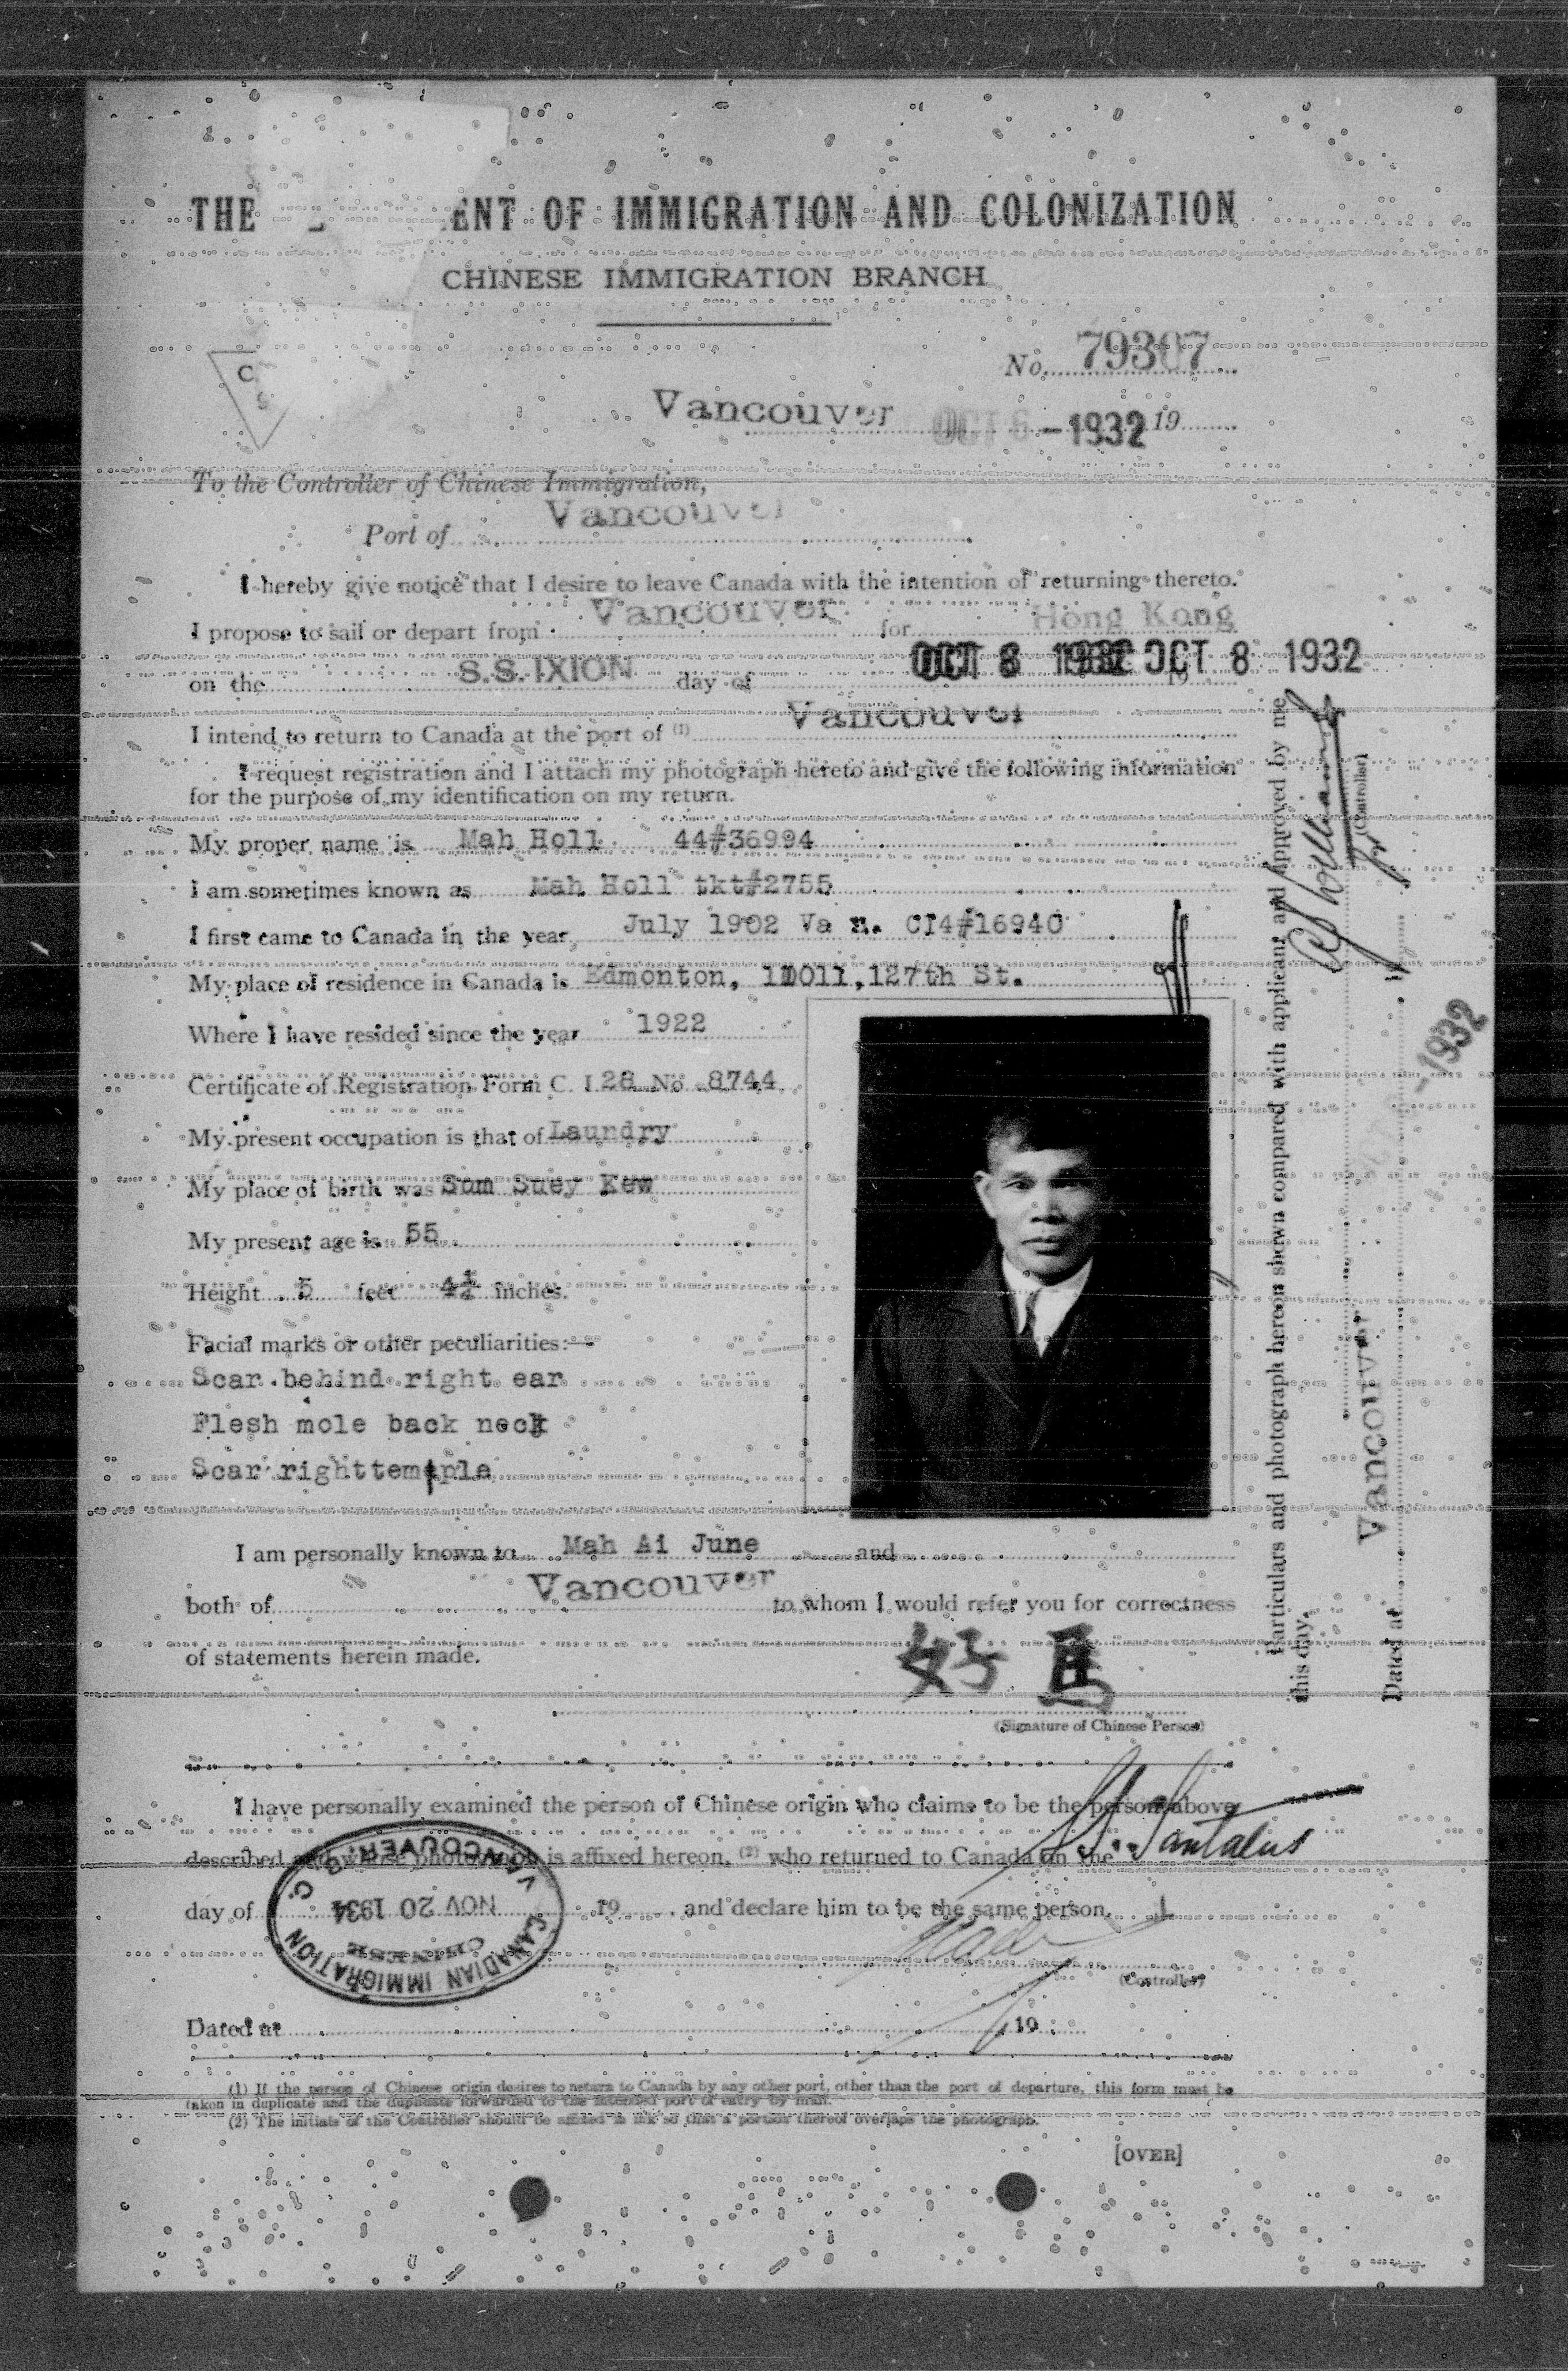 THE ENT OF IMMIGRATION AND COLONIZATION
CHINESE IMMIGRATION BRANCH
C
S
No. 79307
Vancouver OCT 6 -1932 19
To the Controller of Chinese Immigration,
Port of Vancouver
I hereby give notice that I desire to leave Canada with the intention of returning thereto.
I propose to sail or depart from Vancouver for Hong Kong
on the S.S. IXION day of OCT 8 1932 OCT 8 1932 19
I intend to return to Canada at the port of (1) Vancouver
I request registration and I attach my photograph hereto and give the following information
for the purpose of my identification on my return.
My proper name is Mah Holl 44#36994
I am sometimes known as Mah Holl tkt#2755
I first came to Canada in the year July 1902 Va n. CI4#16940
My place of residence in Canada is Edmonton, 127th St.
Where I have resided since the year 1922
Certificate of Registration Form C. I 28 No 8744
My present occupation is that of Laundry
My place of birth was Sum Suey Kew
My present age is 55
Height 5 feet 4½ inches.
Facial marks or other peculiarities:—
Scar behind right ear
Flesh mole back neck
Scar right temple
I am personally known to Mah Ai June and
both of Vancouver to whom I would refer you for correctness
of statements herein made.
好 馬
(Signature of Chinese Person)
I have personally examined the person of Chinese origin who claims to be the person above
described and whose photograph is affixed hereon, (2) who returned to Canada on the S.S. Tantalus
day of 19 and declare him to be the same person.
CANADIAN IMMIGRATION
CHINESE
NOV 20 1934
VANCOUVER, B.C.
(Controller)
Dated at 19
(1) If the person of Chinese origin desires to return to Canada by any other port, other than the port of departure, this form must be
taken in duplicate and the duplicate forwarded to the intended port of entry by mail.
(2) The initials of the Controller should be affixed in ink so that a portion thereof overlaps the photograph.
[OVER]
Particulars and photograph hereon shown compared with applicant and approved by me
this day.
(Controller)
Dated at Vancouver -1932